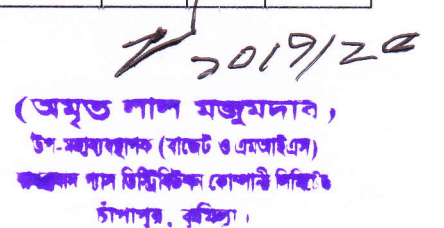 2019/20
(অমৃত লাল মজুমদার)
উপ-মহাব্যবস্থাপক (বাজেট ও এমআইএস)
গ্যাস ডিস্ট্রিবিউশন কোম্পানী লিমিটেড
চাঁপাপুর, কুমিল্লা।